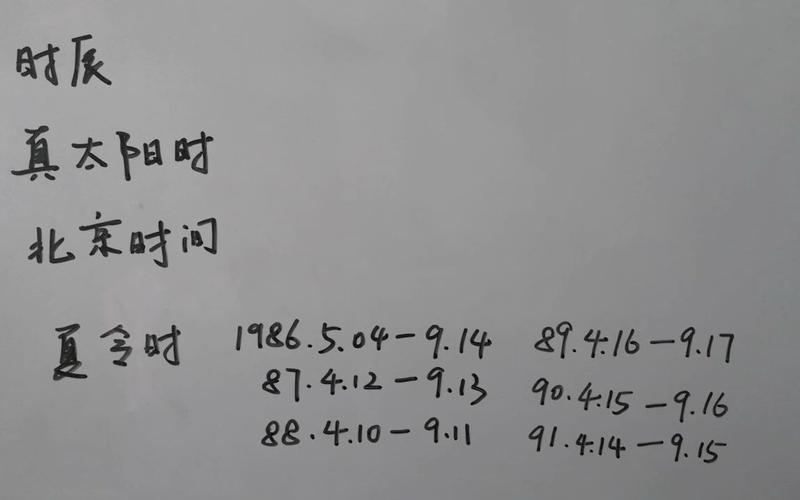 时辰
真太阳时
北京时间
夏令时 1986.5.04-9.14 89.4.16-9.17
87.4.12-9.13 90.4.15-9.16
88.4.10-9.11 91.4.14-9.15